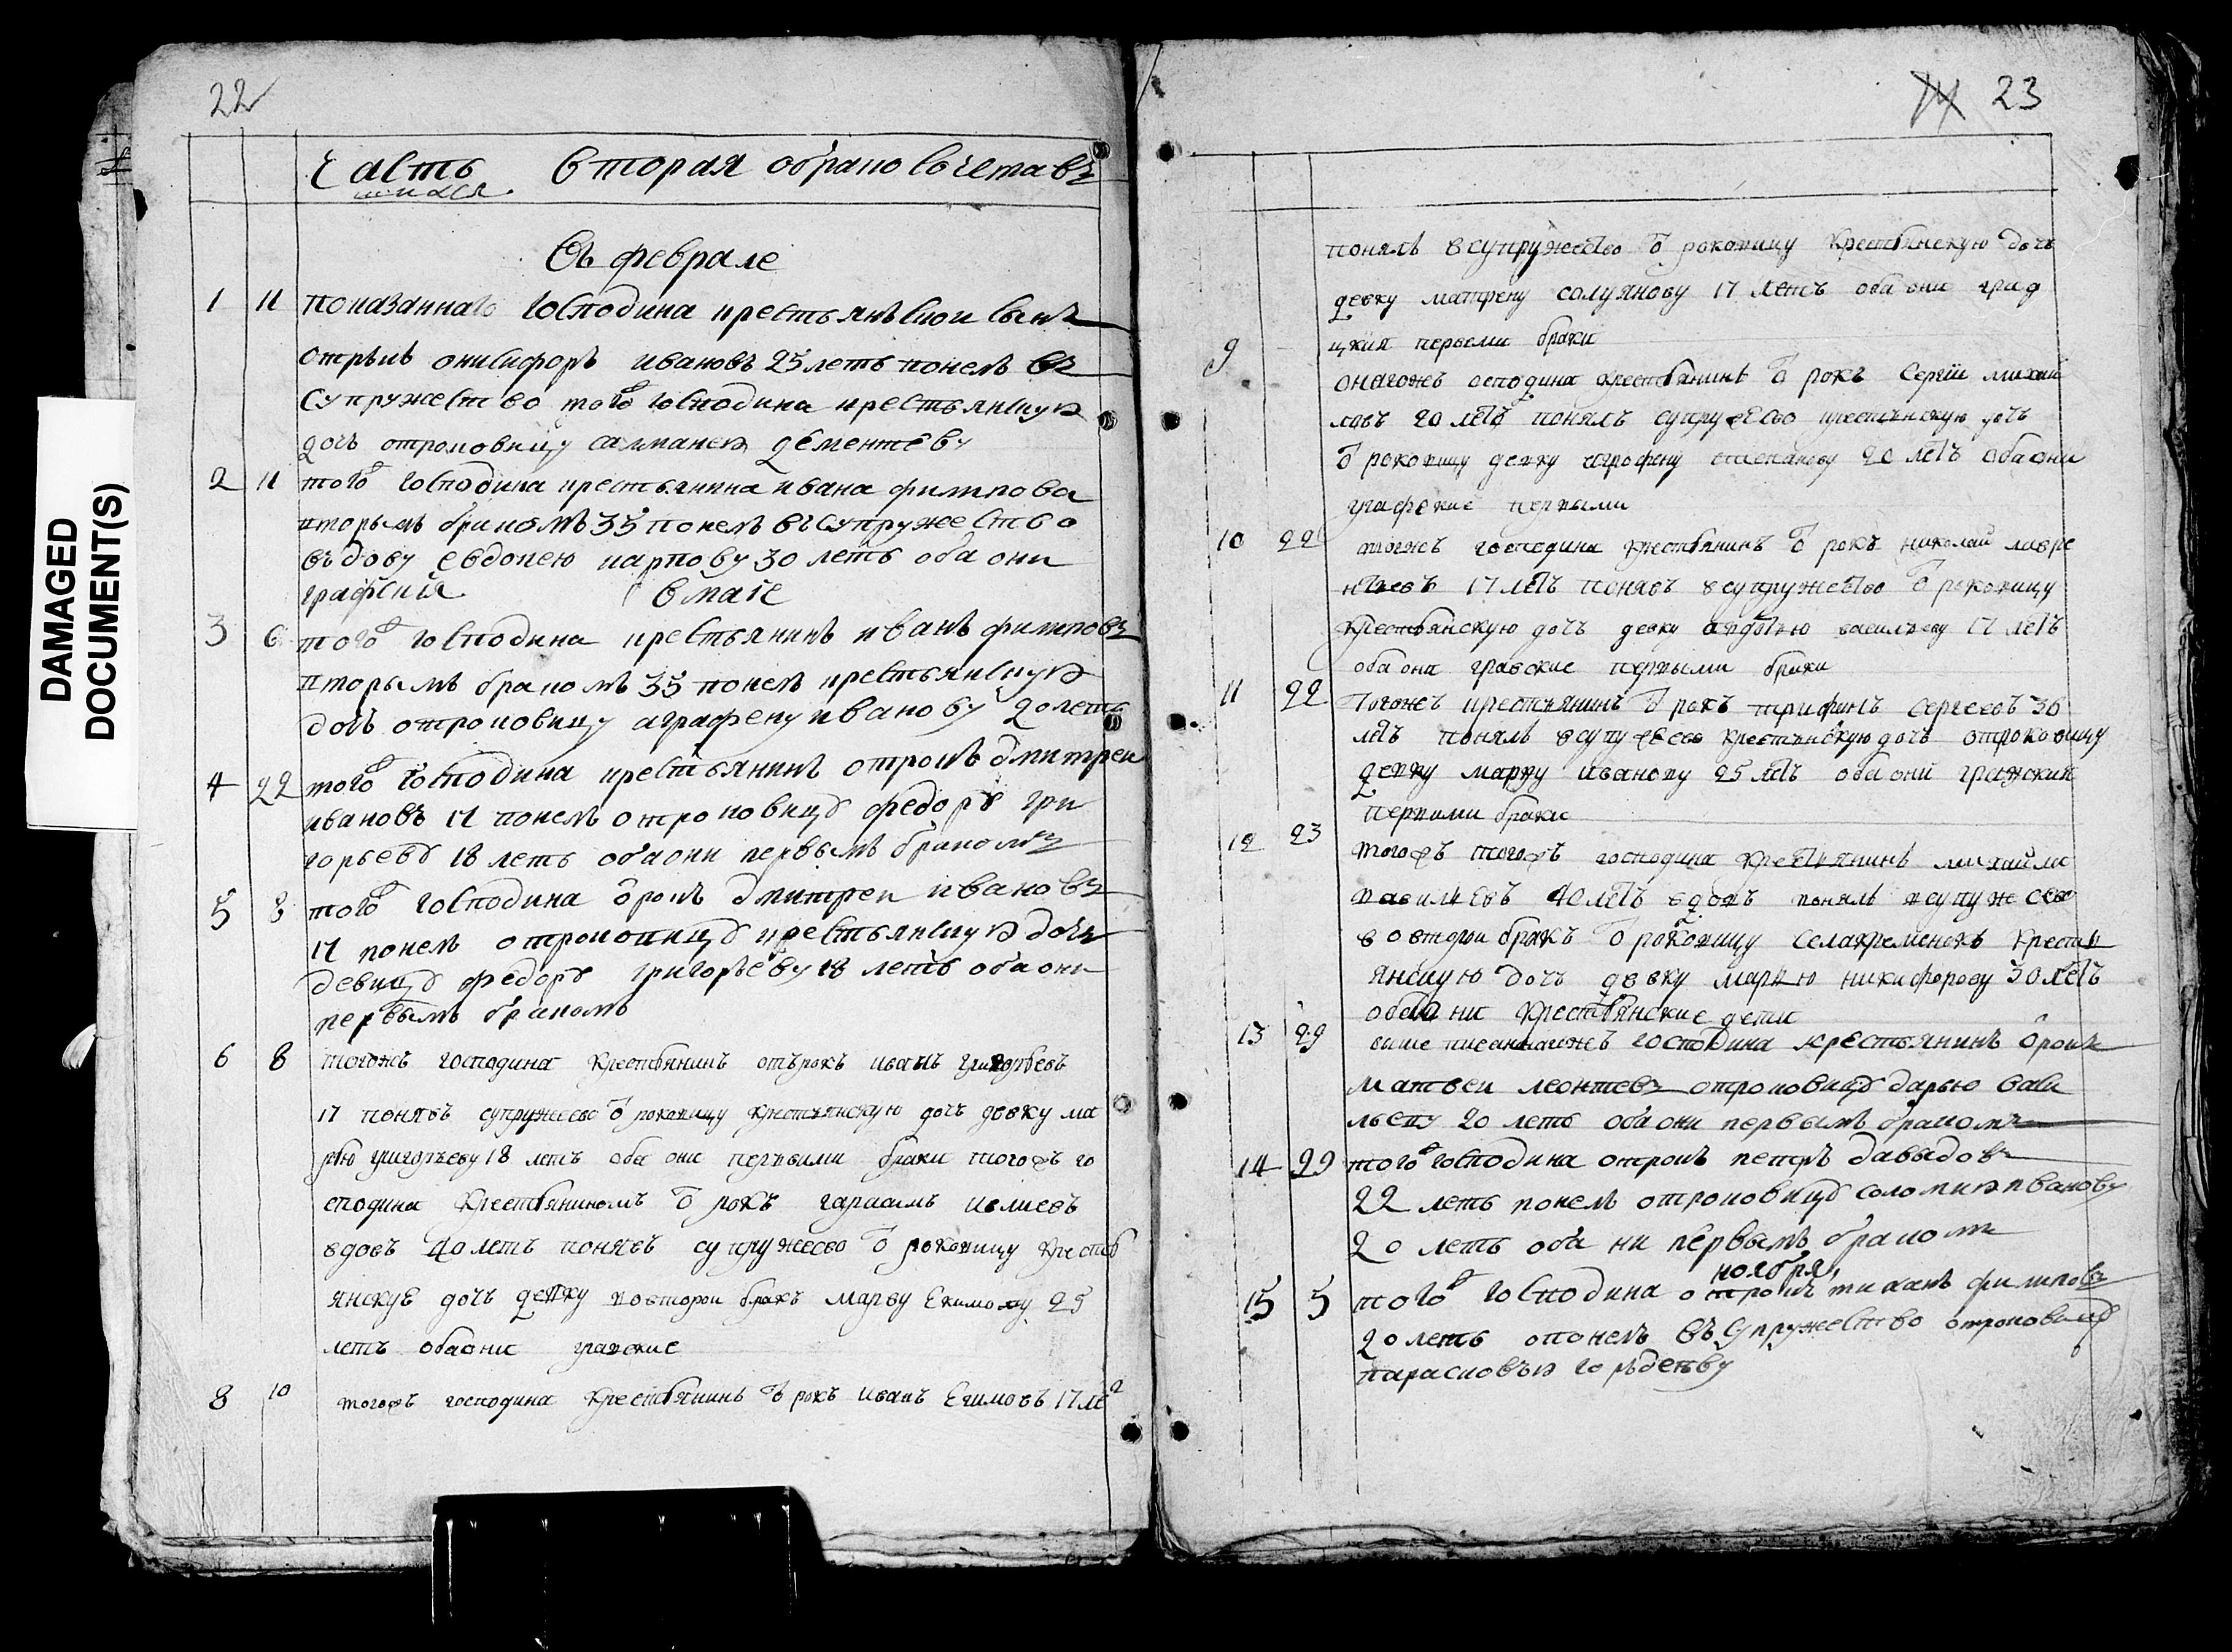 22
DAMAGED
DOCUMENT(S)
Часть вторая обрано сочетавъ
шихся
Въ феврале
1 11 показаннаго господина крестьянъскои сынъ
отрокъ онисифоръ ивановъ 25 леть понелъ въ
супружество тогож господина крестьянскую
дочь отроковицу дементеву
2 11 тогож господина крестьянина ивана филипова
вторымъ бракомъ 35 понелъ въ супружество
въдову евдокею карпову 30 леть оба они
графския в маге
3 6 тогож господина крестьянинъ иванъ филиповъ
вторымъ бракомъ 35 понелъ крестьянскую
дочь отроковицу аграфену иванову 20 леть
4 22 тогож господина крестьянинъ отрокъ дмитреи
ивановъ 17 понелъ отроковицу федору гри
горьеву 18 леть оба они первымъ бракомъ
5 3 тогож господина отрокъ дмитреи ивановъ
17 понелъ отроковицу крестьянскую дочь
девицу федору григорьеву 18 леть оба они
первымъ бракомъ
6 8 тогожъ господина крестьянинъ отърокъ иванъ григорьевъ
17 понявъ супружесво отроковицу крестьянскую дочь девку ма
рью григорьеву 18 летъ оба они первыми браки тогожъ го
сподина крестьяниномъ отрокъ ивлиевъ
вдовъ 40 летъ понявъ супружесво отроковицу кресть
янскую дочь девку вовторои бракъ марву екимову 25
летъ оба они гравские
8 10 тогожъ господина крестьянинъ отрокъ иванъ екимовъ 17 ле
23
понялъ всупружество отроковицу крестьянскую дочь
девку матрену 17 летъ оба они град
цкия первеми браки
9 онагожъ осподина крестьянинъ отрокъ сергiи михаи
ловъ 20 летъ понялъ супружесво крестьянскую дочь
отроковицу девку аграфену степанову 20 летъ оба они
графские первыми
10 22 тогожъ господина крестьянинъ отрокъ николаи лавре
нтьевъ 17 летъ понявъ всупружество отроковицу
крестьянскую дочь девку авдотью васильеву 17 летъ
оба они гравские первыми браки
11 22 тогожъ крестьянинъ отрокъ трифонъ сергеевъ 30
летъ понялъ всупужесво крестьянскую дочь отроковицу
девку марву иванову 25 летъ оба они гравския
первими браки
12 23 тогожъ тогожъ господина крестьянинъ михаила
василиевъ 40 летъ вдовъ понялъ всупужесво
вовторои бракъ отроковицу села крестьи
янскую дочь девку марью никифорову 30 летъ
обеи они крестьянские дети
13 29 выше писаннагожъ господина крестьянинъ отрокъ
матвеи леонтевъ отроковицу дарью васи
льеву 20 леть оба они первымъ бракомъ
14 29 тогож господина отрокъ петръ давыдовъ
22 леть понелъ отроковицу соломию иванову
20 леть оба ни первымъ бракомъ
ноября
15 5 тогож господина отрокъ филиповъ
20 леть понелъ въ супружество отроковицу
парасковъю